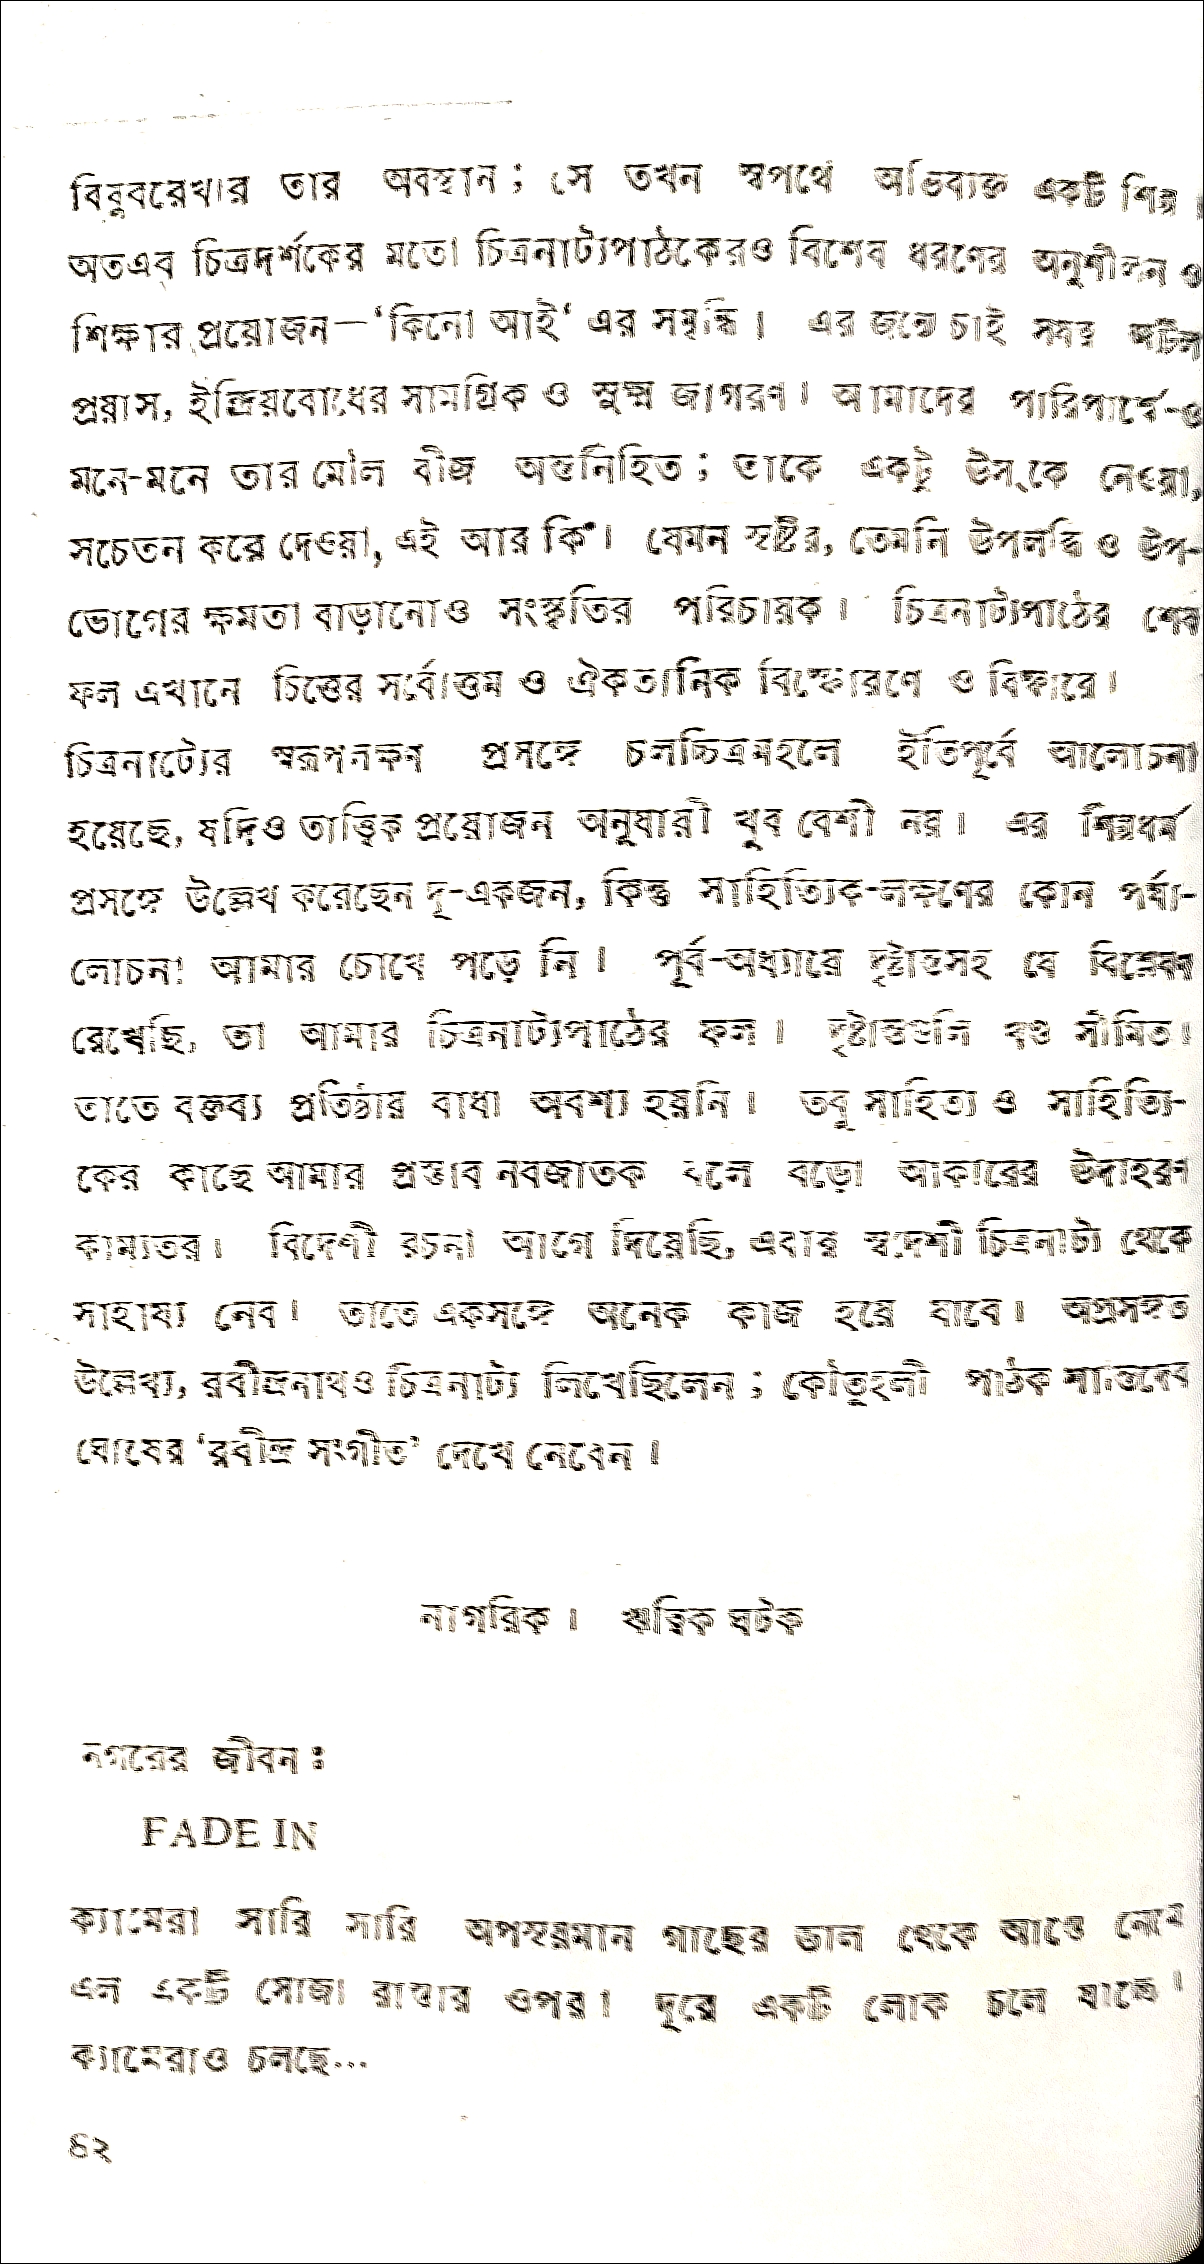 বিষুবরেখার তার অবস্থান ; সে তখন স্বপথে অভিব্যক্ত একটি শিল্প ।
অতএব চিত্রদর্শকের মতো চিত্রনাট্যপাঠকেরও বিশেষ ধরণের অনুশীলন ও
শিক্ষার প্রয়োজন—‘কিনো আই‘ এর সমৃদ্ধি । এর জন্যে চাই
প্রয়াস, ইন্দ্রিয়বোধের সামগ্রিক ও সূক্ষ্ম জাগরণ । আমাদের পারিপার্শ্বে-ও
মনে-মনে তার মৌল বীজ অন্তর্নিহিত ; তাকে একটু উস্‌কে নেওয়া,
সচেতন করে দেওয়া, এই আর কি । যেমন সৃষ্টির, তেমনি উপলব্ধি ও উপ-
ভোগের ক্ষমতা বাড়ানোও সংস্কৃতির পরিচায়ক । চিত্রনাট্যপাঠের শেষ
ফল এখানে চিত্তের সর্বোত্তম ও ঐকতানিক বিস্ফোরণে ও বিস্ফারে ।
চিত্রনাট্যের স্বরূপলক্ষণ প্রসঙ্গে চলচ্চিত্রমহলে ইতিপূর্বে আলোচনা
হয়েছে, যদিও তাত্ত্বিক প্রয়োজন অনুযায়ী খুব বেশী নয় । এর শিল্পধর্ম
প্রসঙ্গে উল্লেখ করেছেন দু-একজন, কিন্তু সাহিত্যিক-লক্ষণের কোন পর্যা-
লোচনা আমার চোখে পড়ে নি । পূর্ব-অধ্যায়ে দৃষ্টান্তসহ যে বিশ্লেষণ
রেখেছি, তা আমার চিত্রনাট্যপাঠের ফল । দৃষ্টান্তগুলি খণ্ড সীমিত ।
তাতে বক্তব্য প্রতিষ্ঠার বাধা অবশ্য হয়নি । তবু সাহিত্য ও সাহিত্যি-
কের কাছে আমার প্রস্তাব নবজাতক বলে বড়ো আকারের উদাহরণ
কাম্যতর । বিদেশী রচনা আগে দিয়েছি, এবার স্বদেশী চিত্রনাট্য থেকে
সাহায্য নেব । তাতে একসঙ্গে অনেক কাজ হয়ে যাবে । অপ্রসঙ্গত
উল্লেখ্য, রবীন্দ্রনাথও চিত্রনাট্য লিখেছিলেন ; কৌতূহলী পাঠক শান্তিদেব
ঘোষের ‘রবীন্দ্র সংগীত’ দেখে নেবেন ।
নাগরিক । ঋত্বিক ঘটক
নগরের জীবন :
FADE IN
ক্যামেরা সারি সারি অপসৃয়মান গাছের ডাল থেকে আস্তে নেমে
এল একটি সোজা রাস্তার ওপর । দূরে একটি লোক চলে যাচ্ছে ।
ক্যামেরাও চলছে...
৪২